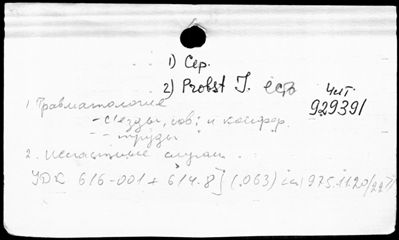 1) Сер.
2) Probst J. есть
Чит
929391
1 Травматология
- съезды, сов; и конфер.
-- труды
2. Несчастные случаи.
УДК 616-001+614.8] (.063) "1975.11.20/22"